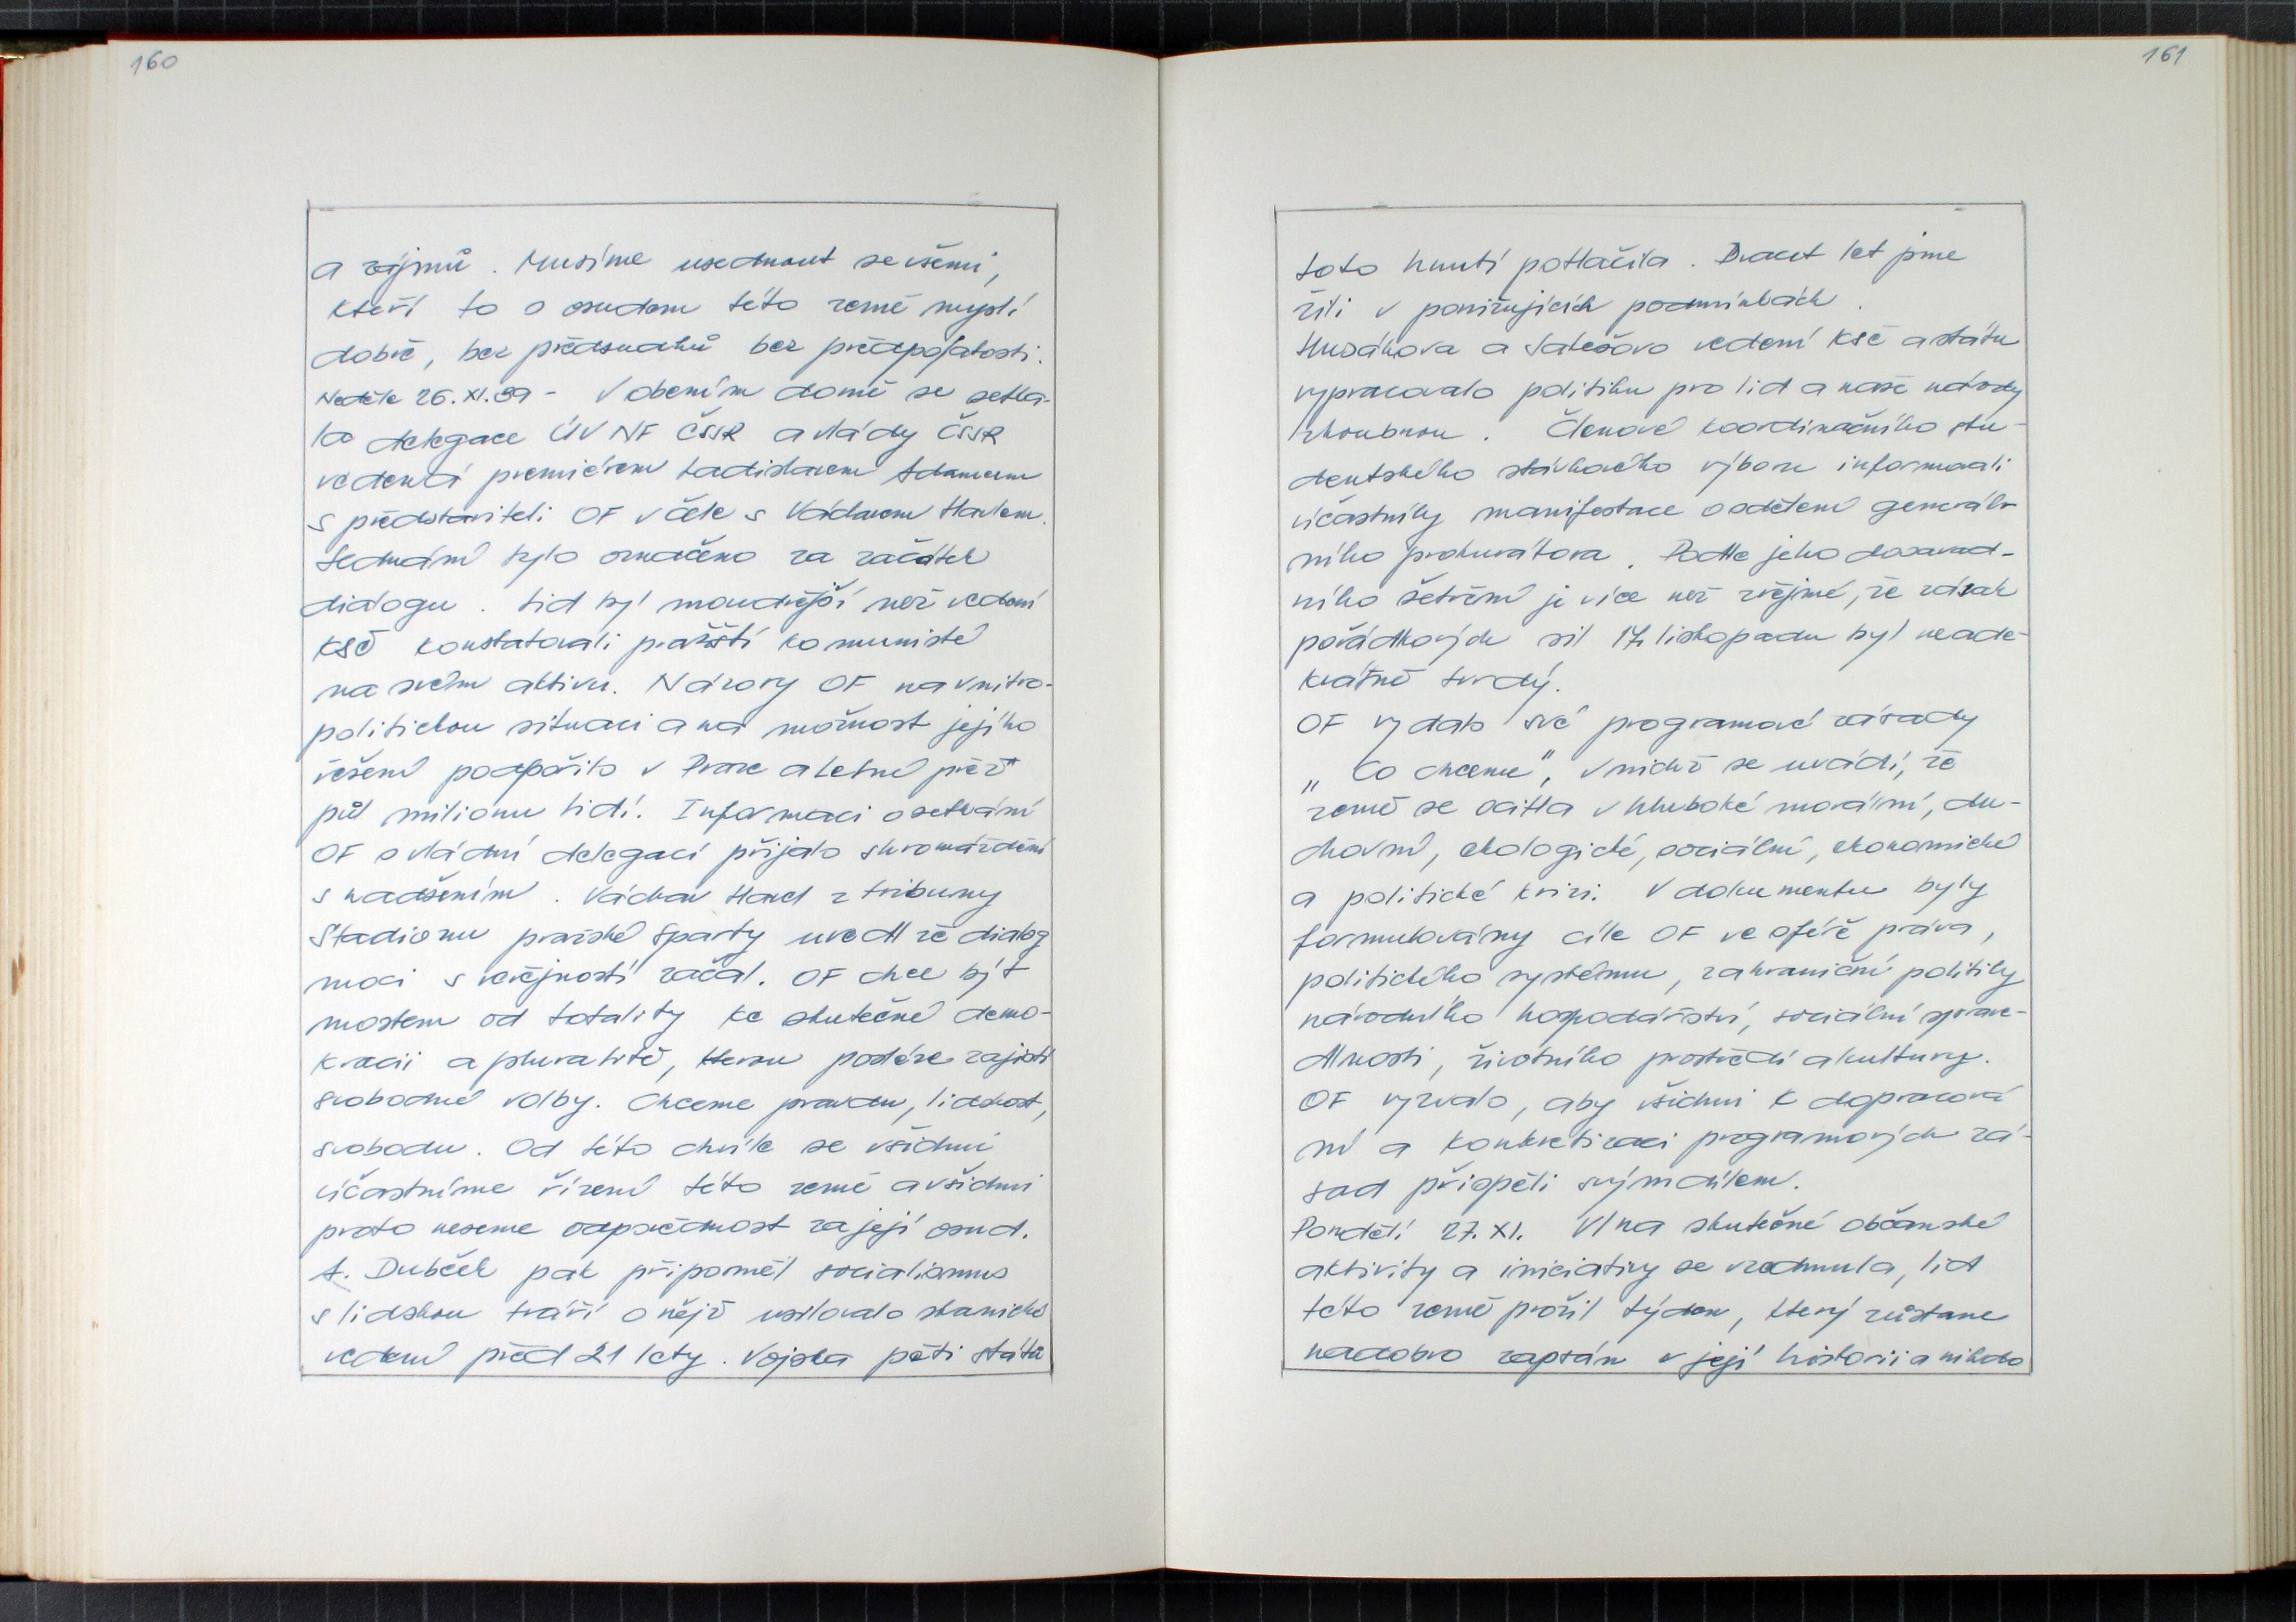 160
a zájmů. Musíme usednout se všemi,
kteří to s osudem této země myslí
dobře, bez předsudků bez předpojatosti.
Neděle 26.XI.89 - V obecním domě se setka-
la delegace ÚV NF ČSSR a vlády ČSSR
vedená premiérem Ladislavem Adamcem
s představiteli OF v čele s Václavem Havlem.
Jednání bylo označeno za začátek
dialogu. Lid byl moudřejší než vedení
KSČ konstatovali pražští komunisté
na svém aktivu. Názory OF na vnitro-
politickou situaci a na možnost jejího
řešení podpořilo v Praze a Letné přes
půl milionu lidí. Informaci o setkání
OF s vládní delegací přijalo shromáždění
s nadšením. Václav Havel z tribuny
Stadionu pražské Sparty uvedl že dialog
moci s veřejností začal. OF chce být
mostem od totality ke skutečné demo-
kracii a pluralitě, kterou posléze zajistí
svobodné volby. Chceme pravdu, lidskost,
svobodu. Od této chvíle se všichni
účastníme řízení této země a všichni
proto neseme odpovědnost za její osud.
A. Dubček pak připomněl socialismus
s lidskou tváří o nějž usilovalo stranické
vedení před 21 lety. Vojska pěti států
161
toto hnutí potlačila. Dvacet let jsme
žili v ponižujících podmínkách.
Husákovo a Jakešovo vedení KSČ a státu
vypracovalo politiku pro lid a naše národy
zhoubnou. Členové koordinačního stu-
dentského stávkového výboru informovali
účastníky manifestace o sdělení generál-
ního prokurátora. Podle jeho dosavad-
ního šetření je více než zřejmé, že zásah
pořádkových sil 17. listopadu byl neade-
kvátně tvrdý.
OF vydalo své programové zásady
„Co chceme", v nichž se uvádí, že
země se ocitla v hluboké morální, du-
chovní, ekologické, sociální, ekonomické
a politické krizi. V dokumentu byly
formulovány cíle OF ve sféře práva,
politického systému, zahraniční politiky
národního hospodářství, sociální sprave-
dlnosti, životního prostředí a kultury.
OF vyzvalo, aby všichni k dopracová
ní a konkretizaci programových zá-
sad přispěli svým dílem.
Pondělí 27.XI. Vlna skutečné občanské
aktivity a iniciativy se vzedmula, lid
této země prožil týden, který zůstane
nadobro zapsán v její historii a nikdo